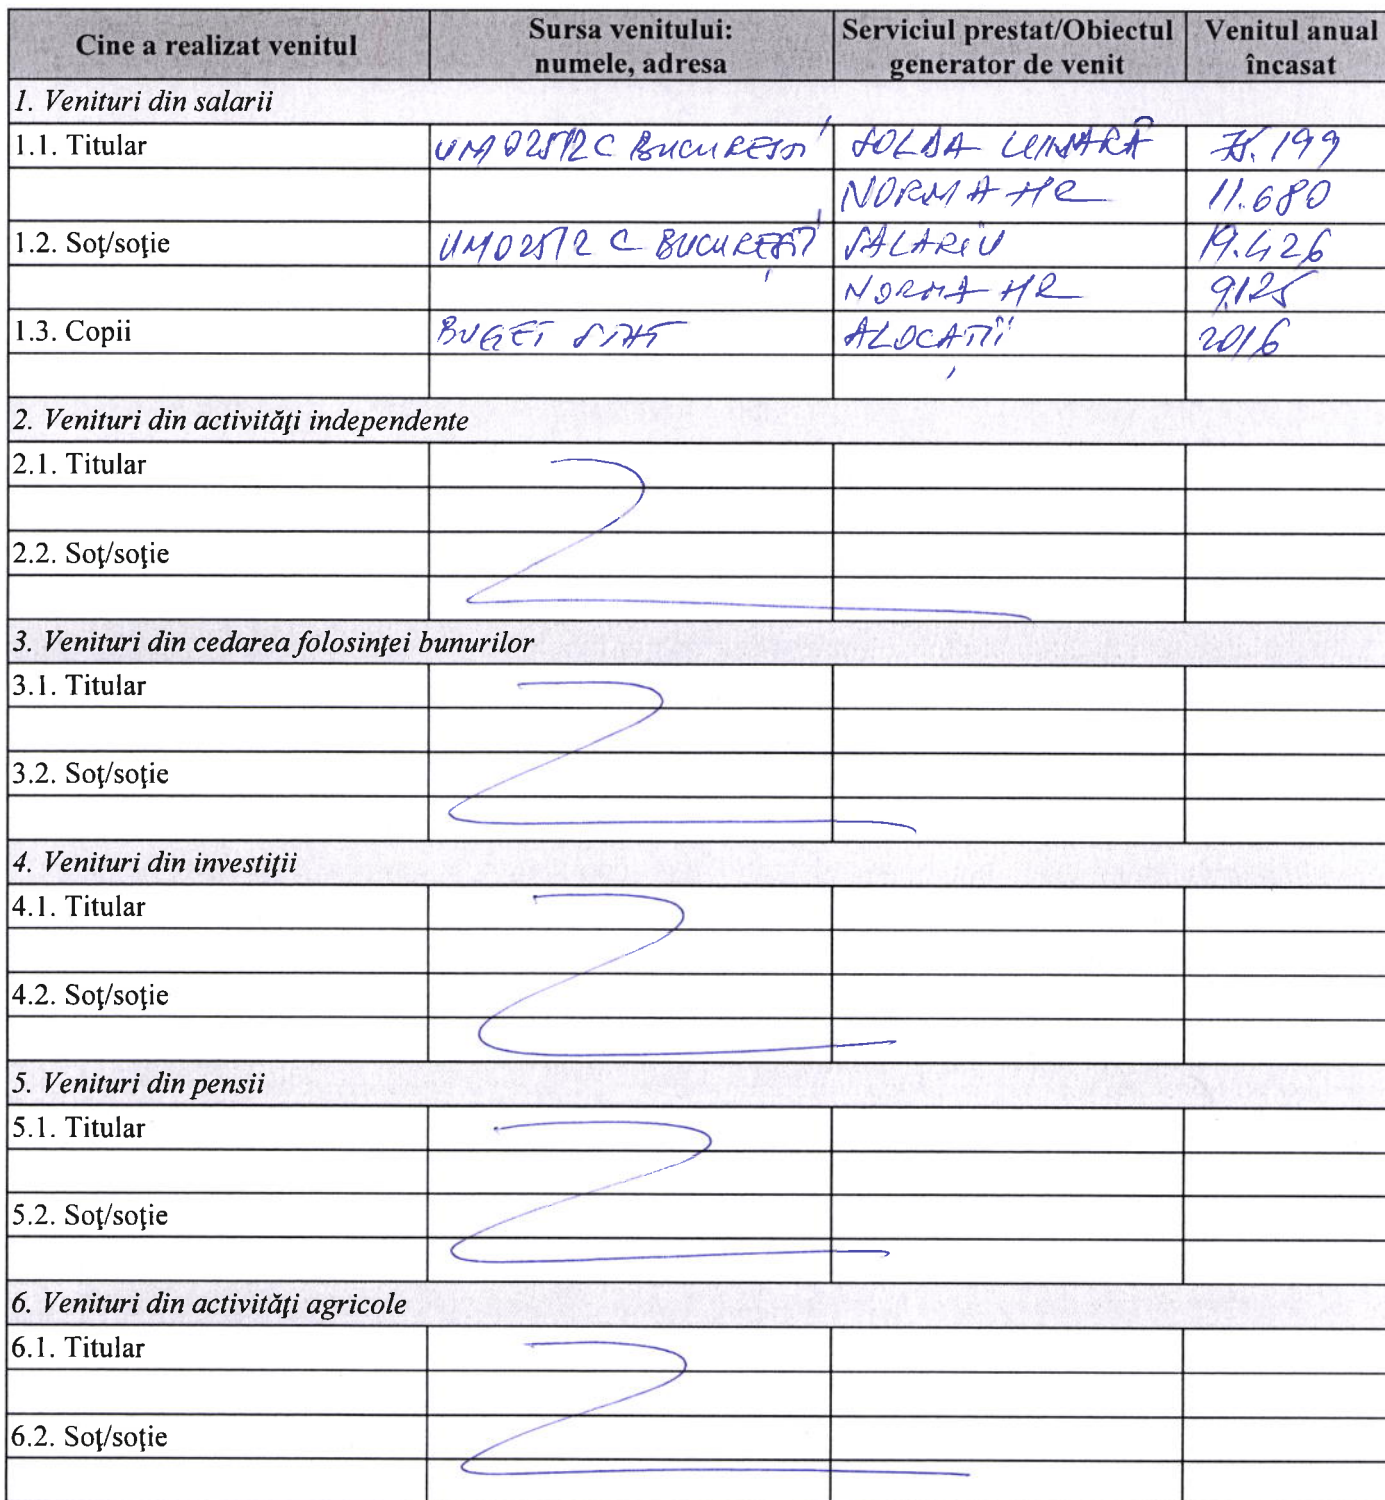 Cine a realizat venitul
Sursa venitului:
numele, adresa
Serviciul prestat/Obiectul
generator de venit
Venitul anual
încasat
1. Venituri din salarii
1.1. Titular UM 02512 C BUCUREȘTI SOLDA LUNARĂ
NORMA HR 11.680
1.2. Soț/soție UM 02512 C BUCUREȘTI SALARIU 19.426
NORMA HR 9125
1.3. Copii BUGET STAT ALOCAȚII 2016
2. Venituri din activităţi independente
2.1. Titular
2.2. Soţ/soţie
3. Venituri din cedarea folosinţei bunurilor
3.1. Titular
3.2. Soţ/soţie
4. Venituri din investiţii
4.1. Titular
4.2. Soţ/soţie
5. Venituri din pensii
5.1. Titular
5.2. Soţ/soţie
6. Venituri din activităţi agricole
6.1. Titular
6.2. Soţ/soţie